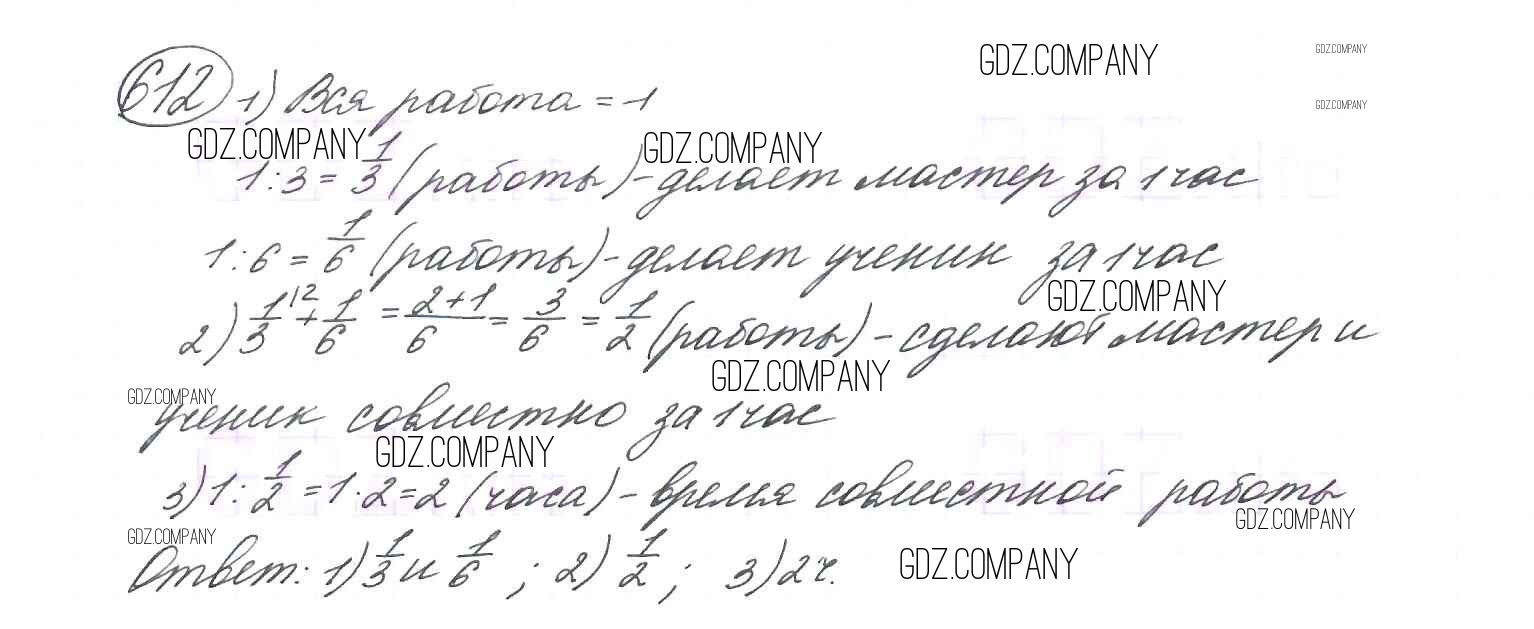 GDZ.COMPANY
GDZ.COMPANY
612 1) Вся работа = 1
GDZ.COMPANY
GDZ.COMPANY
GDZ.COMPANY
1:3 = 1/3 (работы) - делает мастер за 1 час
1:6 = 1/6 (работы) - делает ученик за 1 час
GDZ.COMPANY
2) 1/3 |2 + 1/6 = 2+1/6 = 3/6 = 1/2 (работы) - сделают мастер и
GDZ.COMPANY
GDZ.COMPANY
ученик совместно за 1 час
GDZ.COMPANY
3) 1 : 1/2 = 1·2 = 2 (часа) - время совместной работы
GDZ.COMPANY
GDZ.COMPANY
Ответ: 1) 1/3 и 1/6 ; 2) 1/2 ; 3) 2 ч.
GDZ.COMPANY